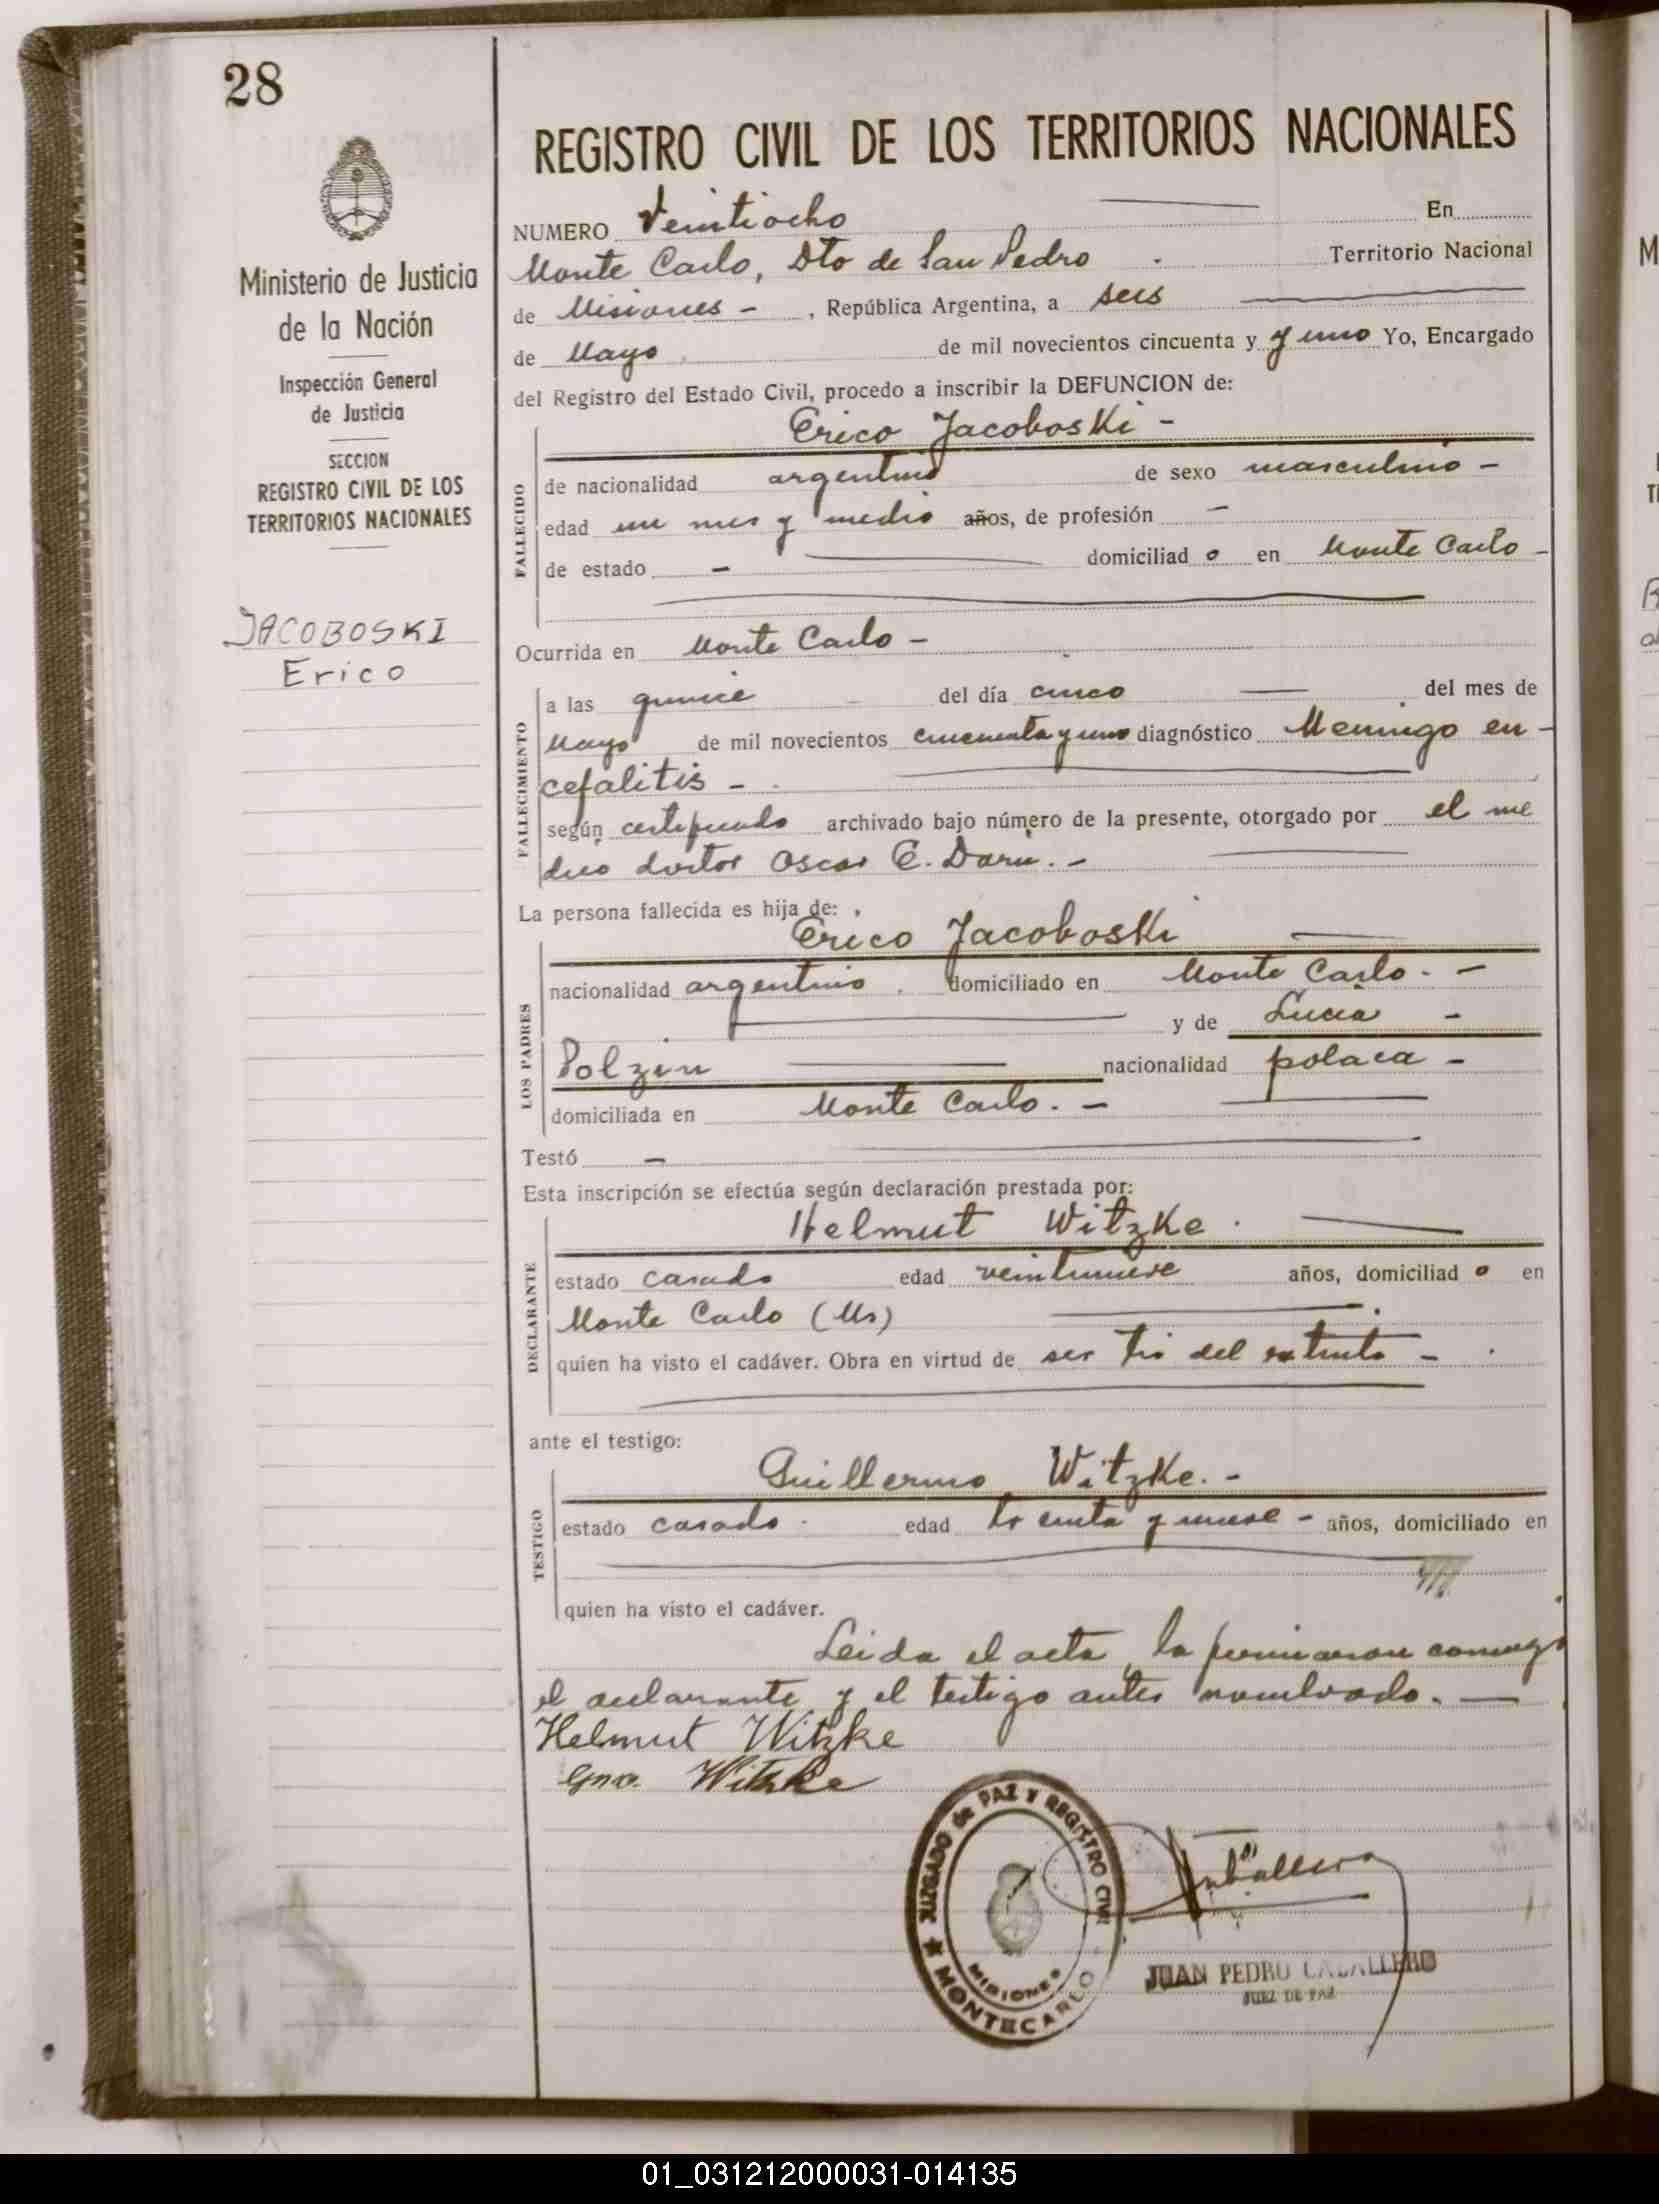 28
REGISTRO CIVIL DE LOS TERRITORIOS NACIONALES
NUMERO Veintiocho En
Monte Carlo, Dto de San Pedro Territorio Nacional
de Misiones - , República Argentina, a seis
de Mayo de mil novecientos cincuenta y y uno Yo, Encargado
del Registro del Estado Civil, procedo a inscribir la DEFUNCION de:
Ministerio de Justicia
de la Nación
Inspección General
de Justicia
SECCION
REGISTRO CIVIL DE LOS
TERRITORIOS NACIONALES
JACOBOSKI
Erico
FALLECIDO
Erico Jacoboski -
de nacionalidad argentino de sexo masculino -
edad un mes y medio años, de profesión -
de estado - domiciliad o en Monte Carlo -
Ocurrida en Monte Carlo -
FALLECIMIENTO
a las quince del día cinco del mes de
Mayo de mil novecientos cincuenta y uno diagnóstico Meningo en-
cefalitis -
según certificado archivado bajo número de la presente, otorgado por el me
dico doctor Oscar E. -
La persona fallecida es hija de:
LOS PADRES
Erico Jacoboski
nacionalidad argentino domiciliado en Monte Carlo. -
y de Lucia -
Polzin nacionalidad polaca -
domiciliada en Monte Carlo. -
Testó -
Esta inscripción se efectúa según declaración prestada por:
DECLARANTE
Helmut Witzke
estado casado edad veintinueve años, domiciliad o en
Monte Carlo (Ms)
quien ha visto el cadáver. Obra en virtud de ser tio del extinto -
ante el testigo:
TESTIGO
Guillermo Witzke. -
estado casado edad treinta y nueve - años, domiciliado en
quien ha visto el cadáver.
Leida el acta, la firmaron conmigo
el declarante y el testigo antes nombrado.
Helmut Witzke
Gmo. Witzke
JUZGADO de PAZ Y REGISTRO CIVIL
MISIONES
★ MONTECARLO
JUAN PEDRO CABALLERO
JUEZ DE PAZ
01_031212000031-014135